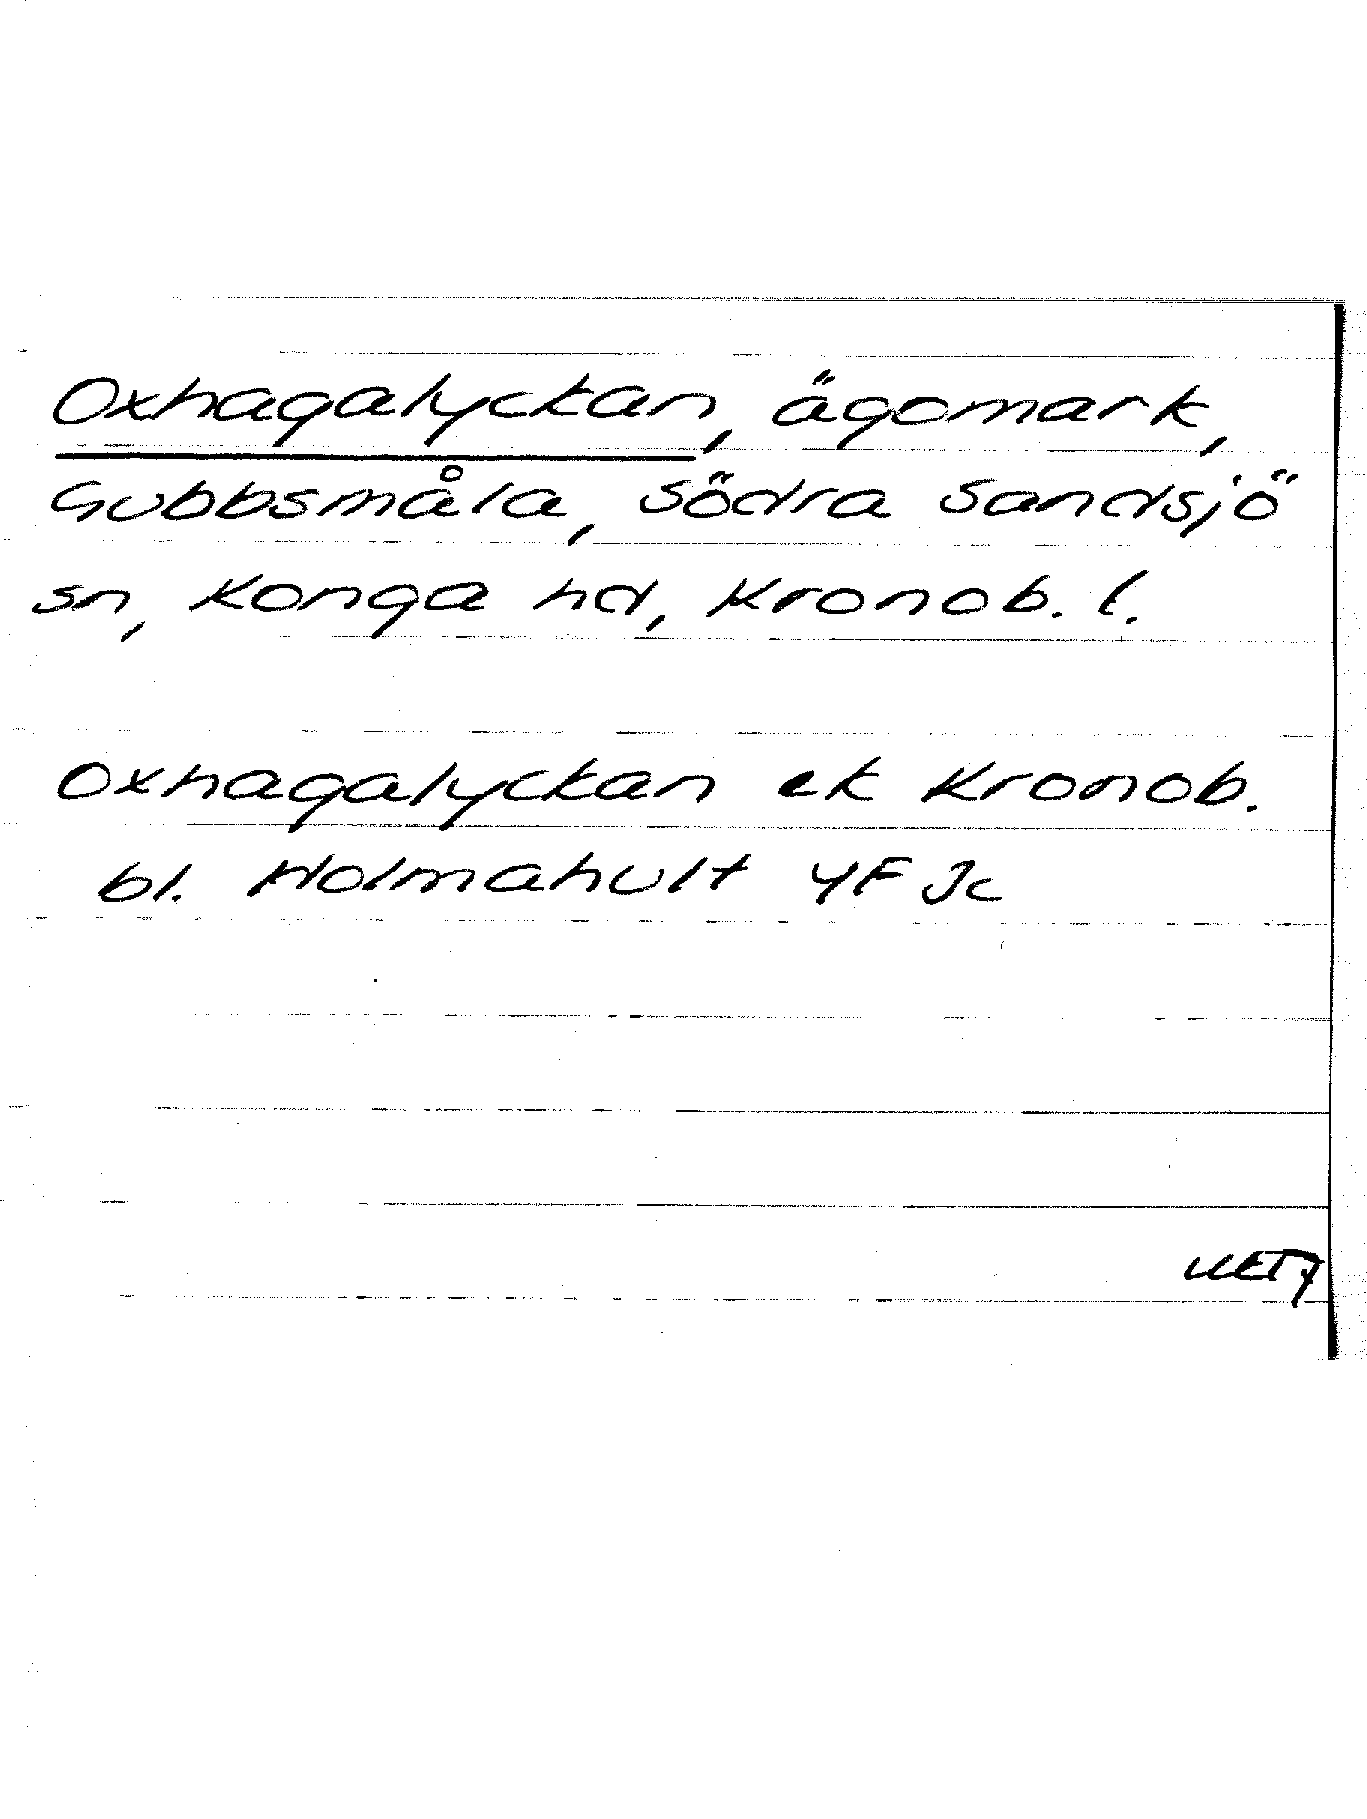 Oxhagalyckan, ägomark,
Gubbsmåla, Södra Sandsjö
sn, Konga hd, Kronob. l.
Oxhagalyckan ek Kronob.
bl. Holmahult 4F Jc